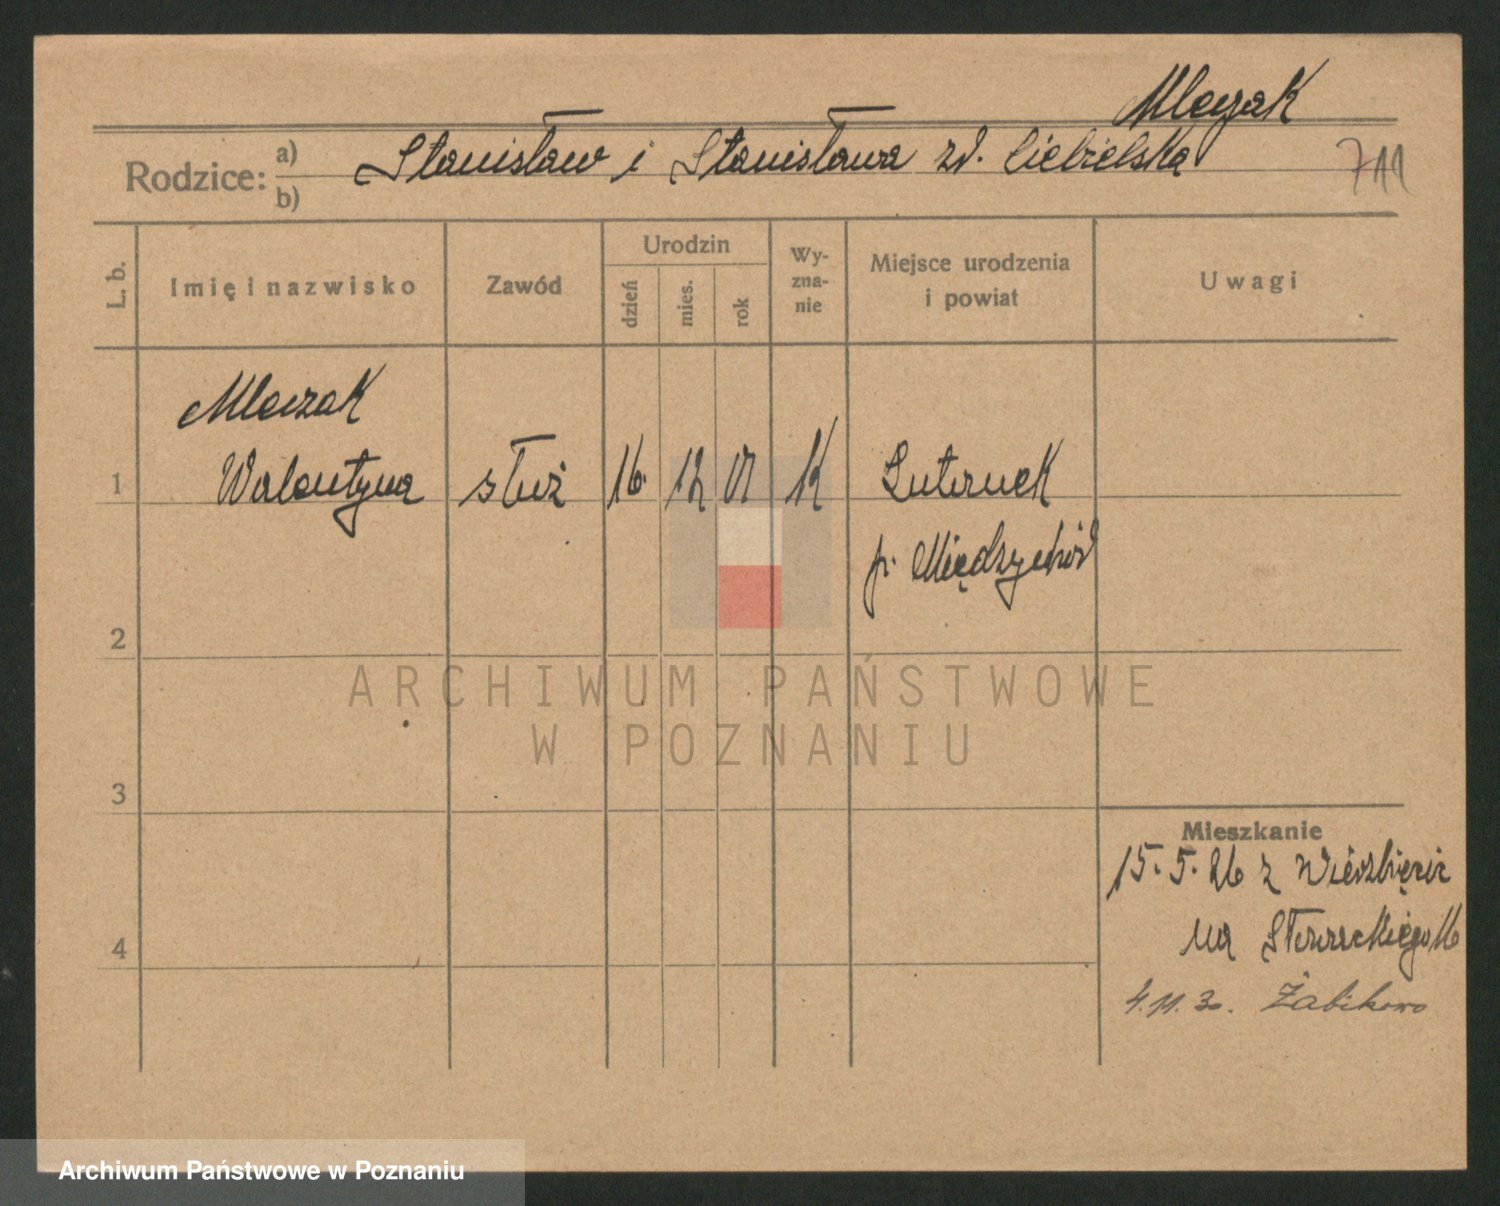 Mleczak
Rodzice: a) b) Stanisław i Stanisława zd. Ciebielska
711
L. b.
Imię i nazwisko
Zawód
Urodzin
dzień
mies.
rok
Wy-
zna-
nie
Miejsce urodzenia
i powiat
Uwagi
Mleczak
1 Walentyna służ 16. 12 01 K
p. Międzychód
2
ARCHIWUM PAŃSTWOWE
W POZNANIU
3
Mieszkanie
15.5.26 z Wierzbięcic
na 16
4
4.11.30. Żabikowo
Archiwum Państwowe w Poznaniu